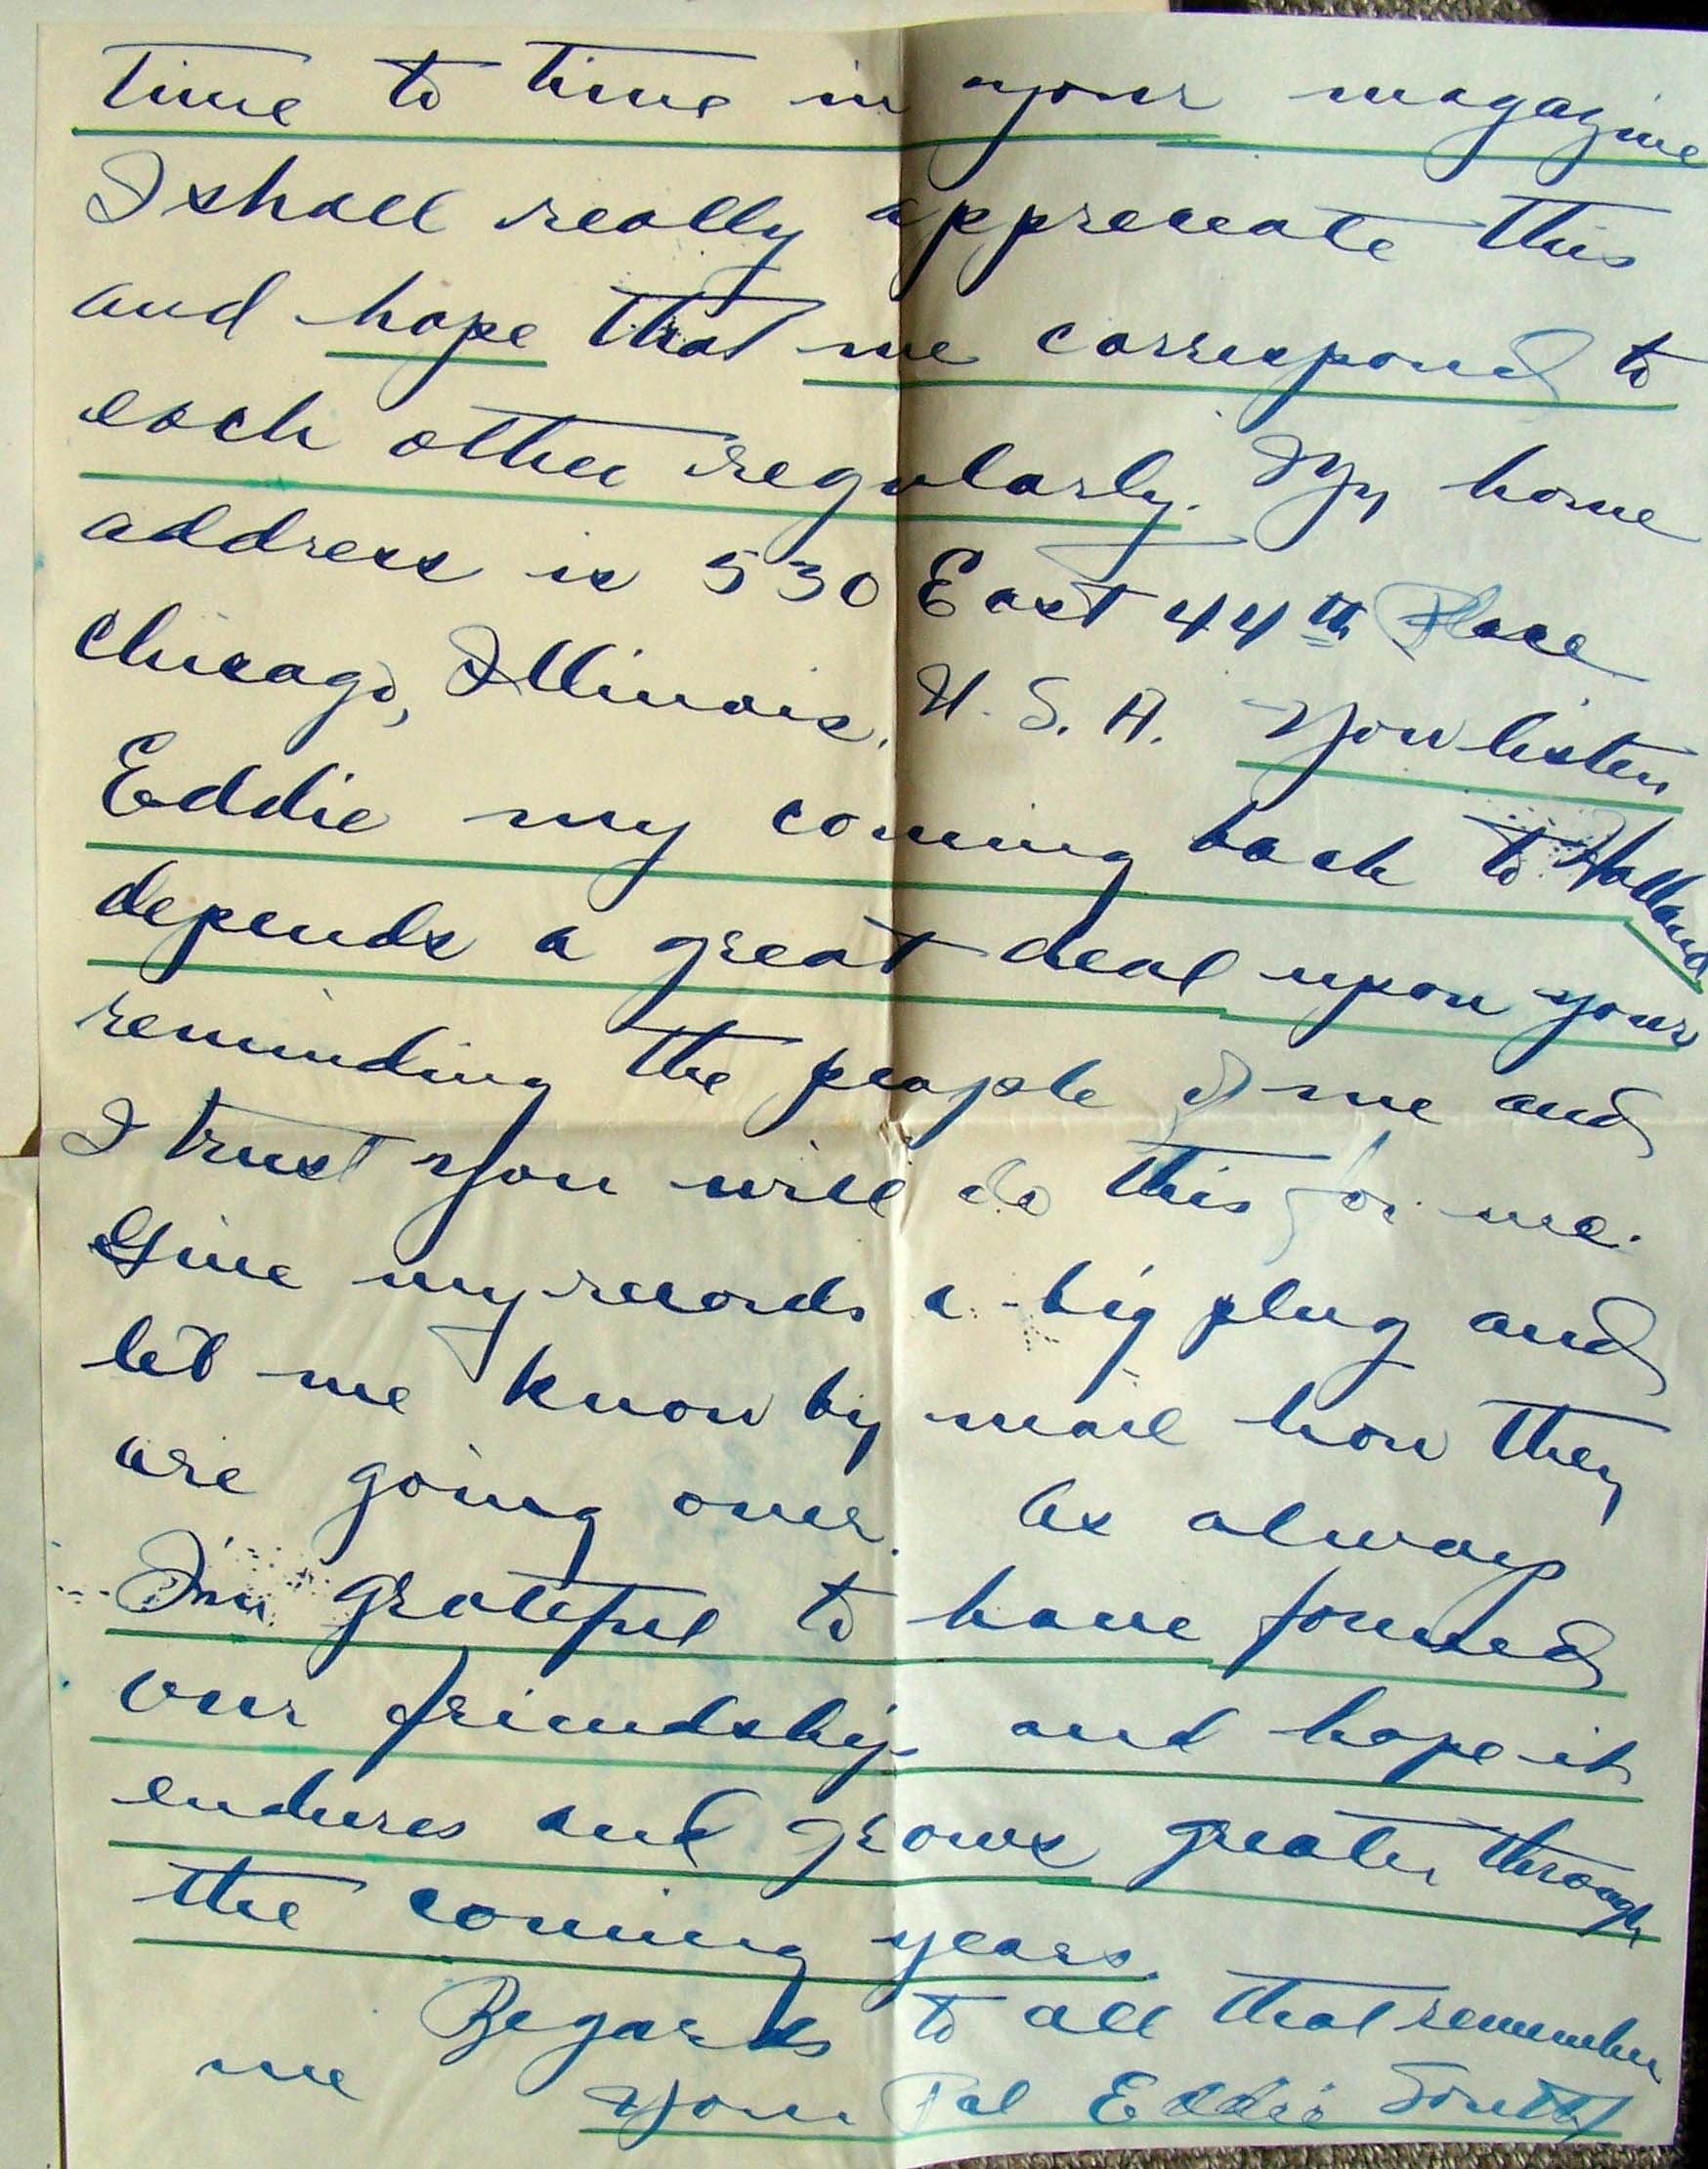 time to time in your magazine
I shall really appreciate this
and hope that we correspond to
each other regularly. My home
address is 530 East 44th Place
Chicago, Illinois. U.S.A. You listen
Eddie my coming back to Holland
depends a great deal upon your
reminding the people of me and
I trust you will do this for me.
Give my records a big plug and
let me know by mail how they
are going over. As always
I'm grateful to have formed
our friendship and hope it
endures and grows greater through
the coming years.
Regards to all that remember
me Your Pal Eddie South